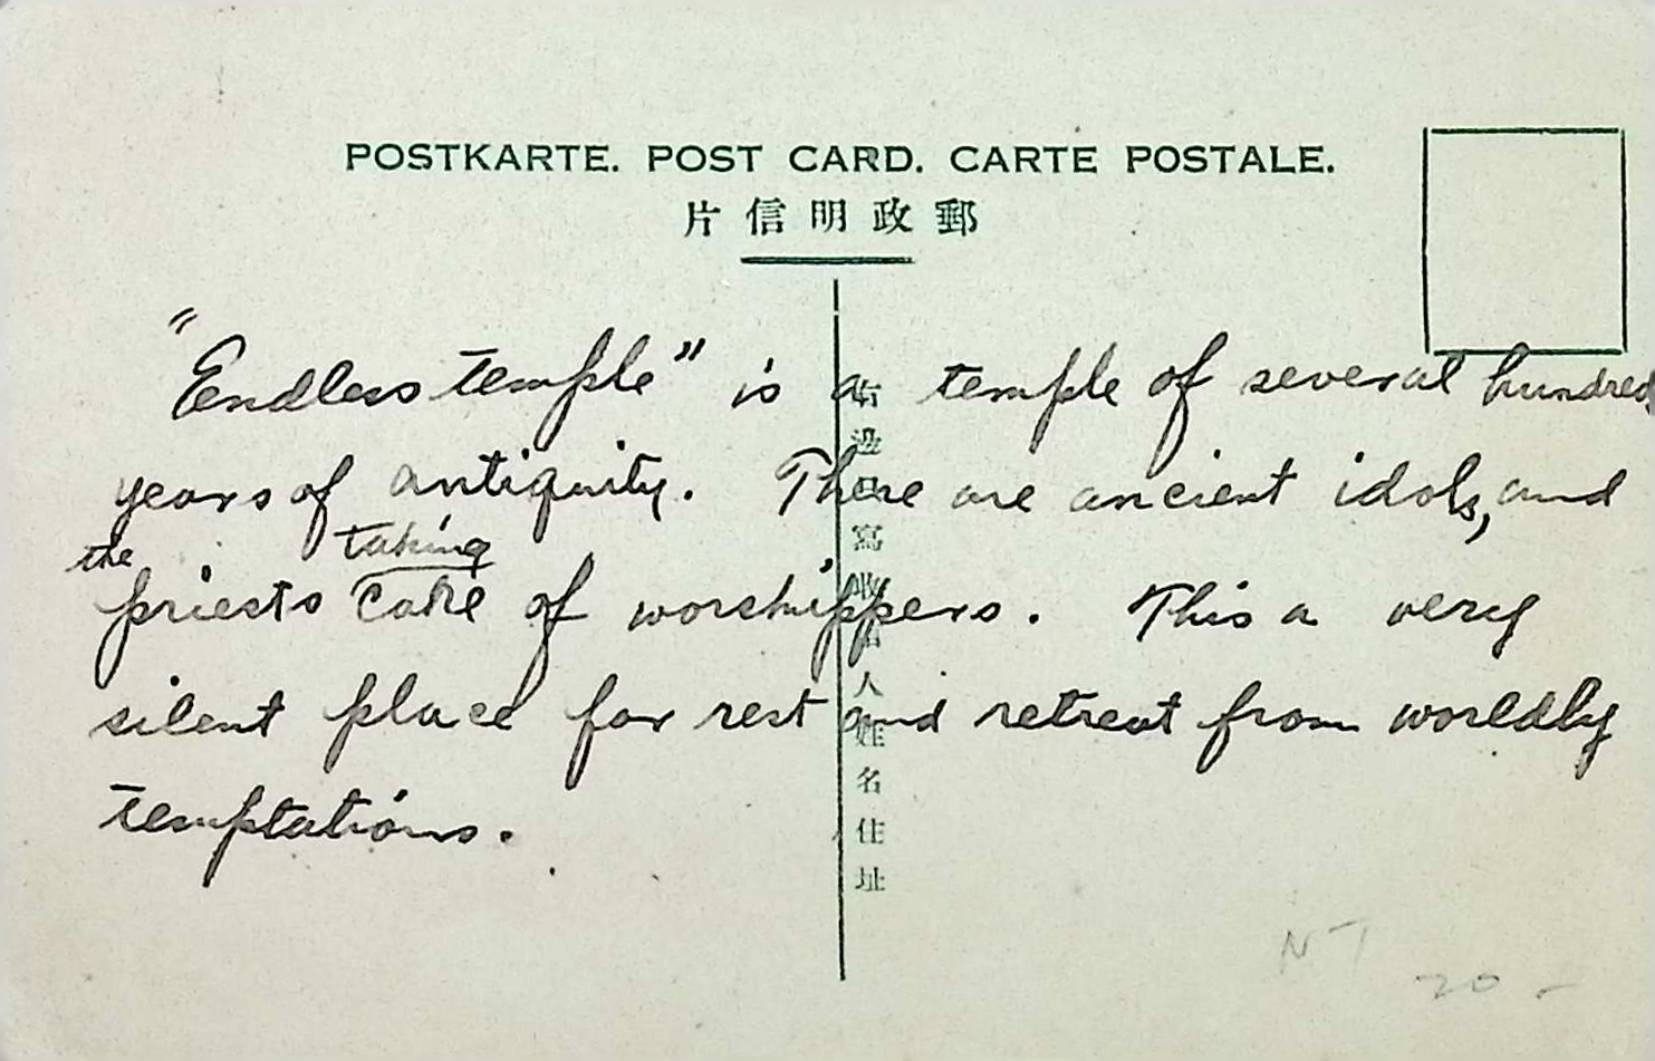 POSTKARTE. POST CARD. CARTE POSTALE.
片信明政郵
"Endless temple" is a temple of several hundred
years of antiquity. There are ancient idols, and
the priests taking care of worshippers. This a very
silent place for rest and retreat from worldly
temptations.
右邊只寫收信人姓名住址
NT
20 -